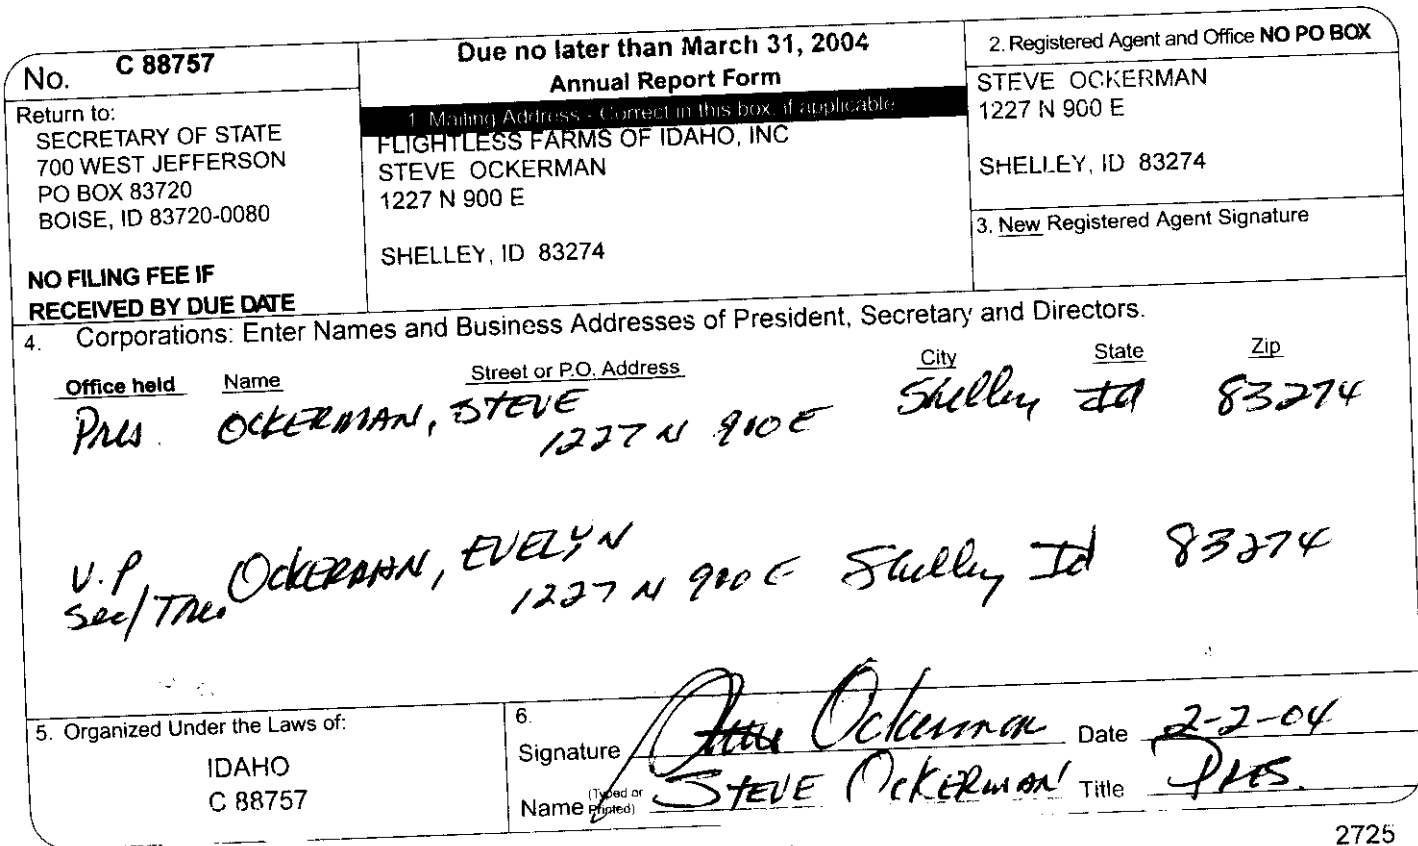 No. C 88757
Return to:
SECRETARY OF STATE
700 WEST JEFFERSON
PO BOX 83720
BOISE, ID 83720-0080
NO FILING FEE IF
RECEIVED BY DUE DATE
Due no later than March 31, 2004
Annual Report Form
1. Mailing Address - Correct in this box, if applicable
FLIGHTLESS FARMS OF IDAHO, INC
STEVE OCKERMAN
1227 N 900 E
SHELLEY, ID 83274
2. Registered Agent and Office NO PO BOX
STEVE OCKERMAN
1227 N 900 E
SHELLEY, ID 83274
3. New Registered Agent Signature
4. Corporations: Enter Names and Business Addresses of President, Secretary and Directors.
Office held Name Street or P.O. Address City State Zip
Pres. OCKERMAN, STEVE 1227 N 900 E Shelley Id 83274
V.P.
Sec/Tre. OCKERMAN, EVELYN 1227 N 900 E Shelley Id 83274
5. Organized Under the Laws of:
IDAHO
C 88757
6.
Signature Steve Ockerman Date 2-2-04
Name (Typed or Printed) STEVE OCKERMAN Title Pres.
2725